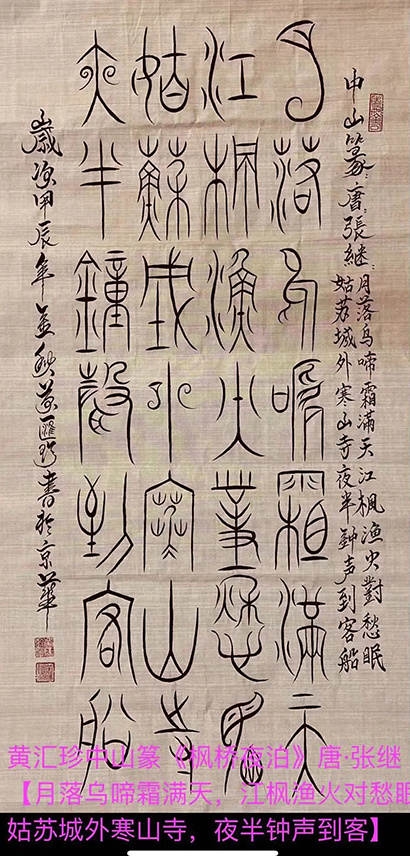 中山篆：唐：張继：月落乌啼霜滿天江枫渔火對愁眠
姑苏城外寒山寺夜半鈡声到客船
月落烏啼霜滿天
江楓漁火對愁眠
姑蘇城外寒山寺
夜半鐘聲到客船
歲次甲辰年孟秋黄匯珍書於京華
黄汇珍中山篆《枫桥夜泊》唐·张继
【月落乌啼霜满天，江枫渔火对愁眠
姑苏城外寒山寺，夜半钟声到客】